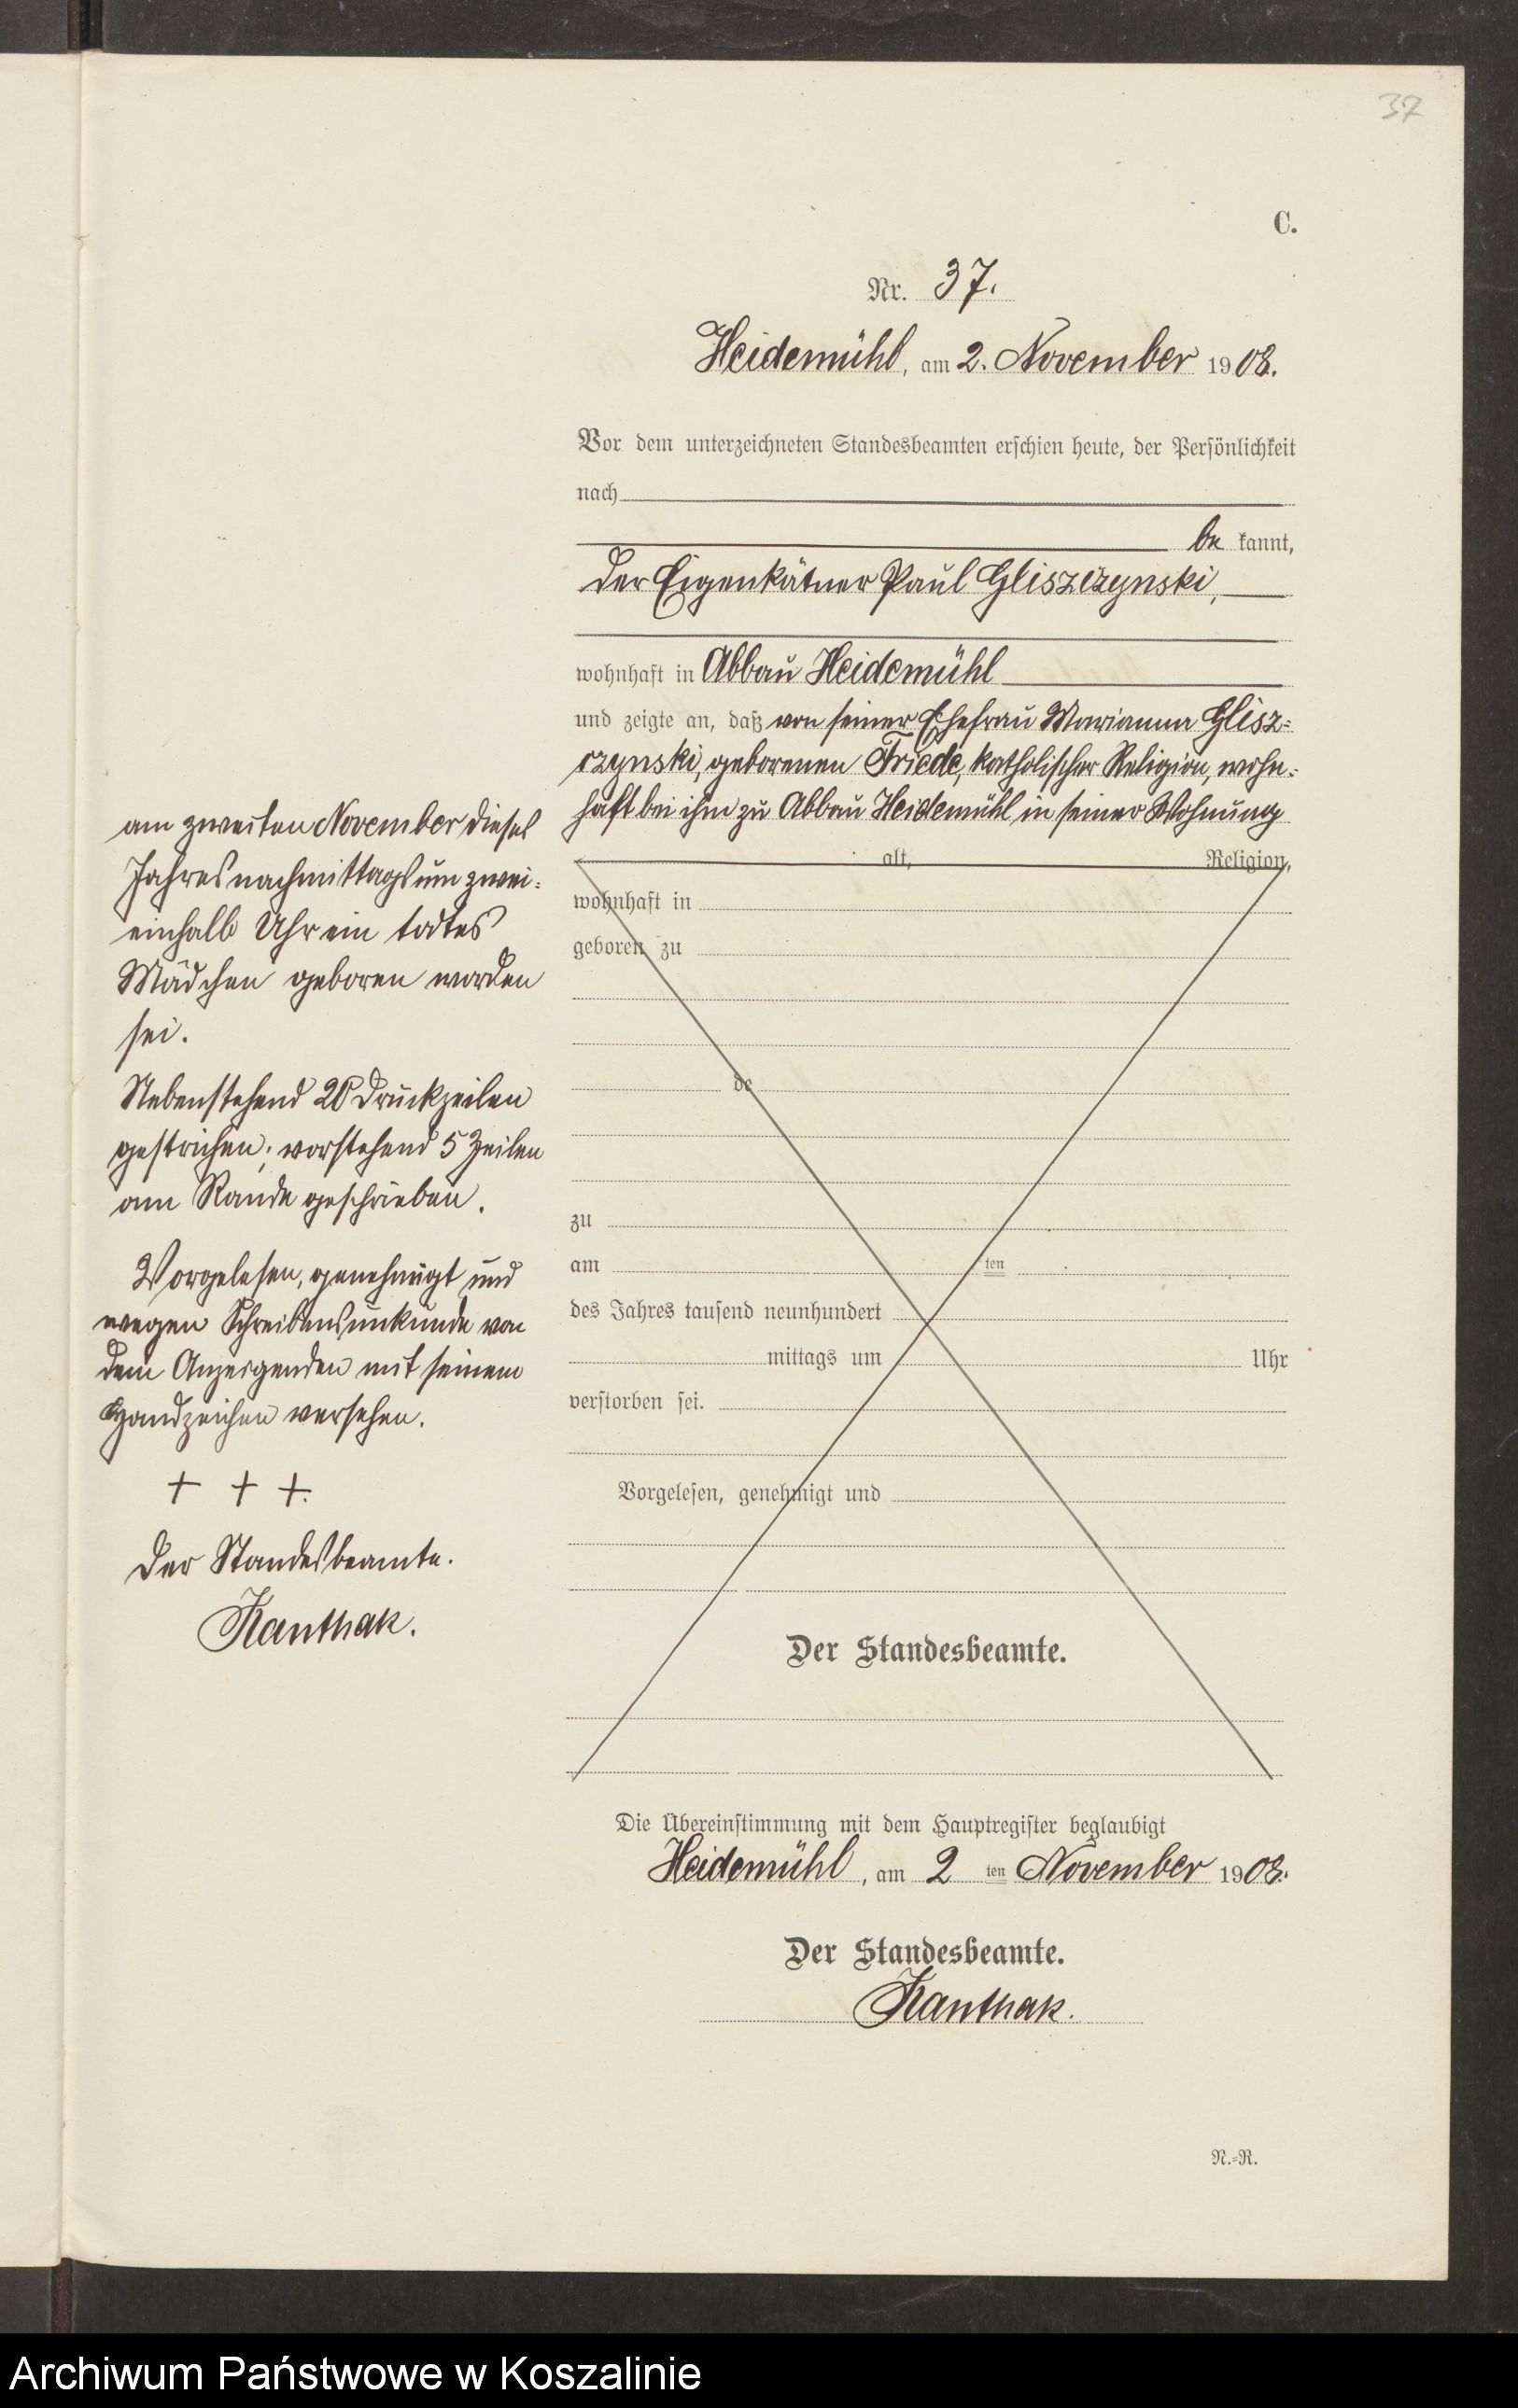 37
C.
Nr. 37.
Heidemühl, am 2. November 1908.
Vor dem unterzeichneten Standesbeamten erschien heute, der Persönlichkeit
nach
be kannt,
der Eigenkätner Paul Gliszczynski,
wohnhaft in Abbau Heidemühl
und zeigte an, daß von seiner Ehefrau Marianna Glisz=
czynski, geborenen Friede, katholischer Religion, wohn=
haft bei ihm zu Abbau Heidemühl in seiner Wohnung
am zweiten November dieses
Jahres nachmittags um zwei=
einhalb Uhr ein todtes
Mädchen geboren worden
sei.
Nebenstehend 20 Druckzeilen
gestrichen; vorstehend 5 Zeilen
am Rande geschrieben.
Vorgelesen, genehmigt und
wegen Schreibensunkunde von
dem Anzeigenden mit seinem
Handzeichen versehen.
+ + +.
Der Standesbeamte.
Kanthak.
alt, Religion,
wohnhaft in
geboren zu
de
zu
am ten
des Jahres tausend neunhundert
mittags um Uhr
verstorben sei.
Vorgelesen, genehmigt und
Der Standesbeamte.
Die Übereinstimmung mit dem Hauptregister beglaubigt
Heidemühl, am 2 ten November 1908.
Der Standesbeamte.
Kanthak.
N.=R.
Archiwum Państwowe w Koszalinie